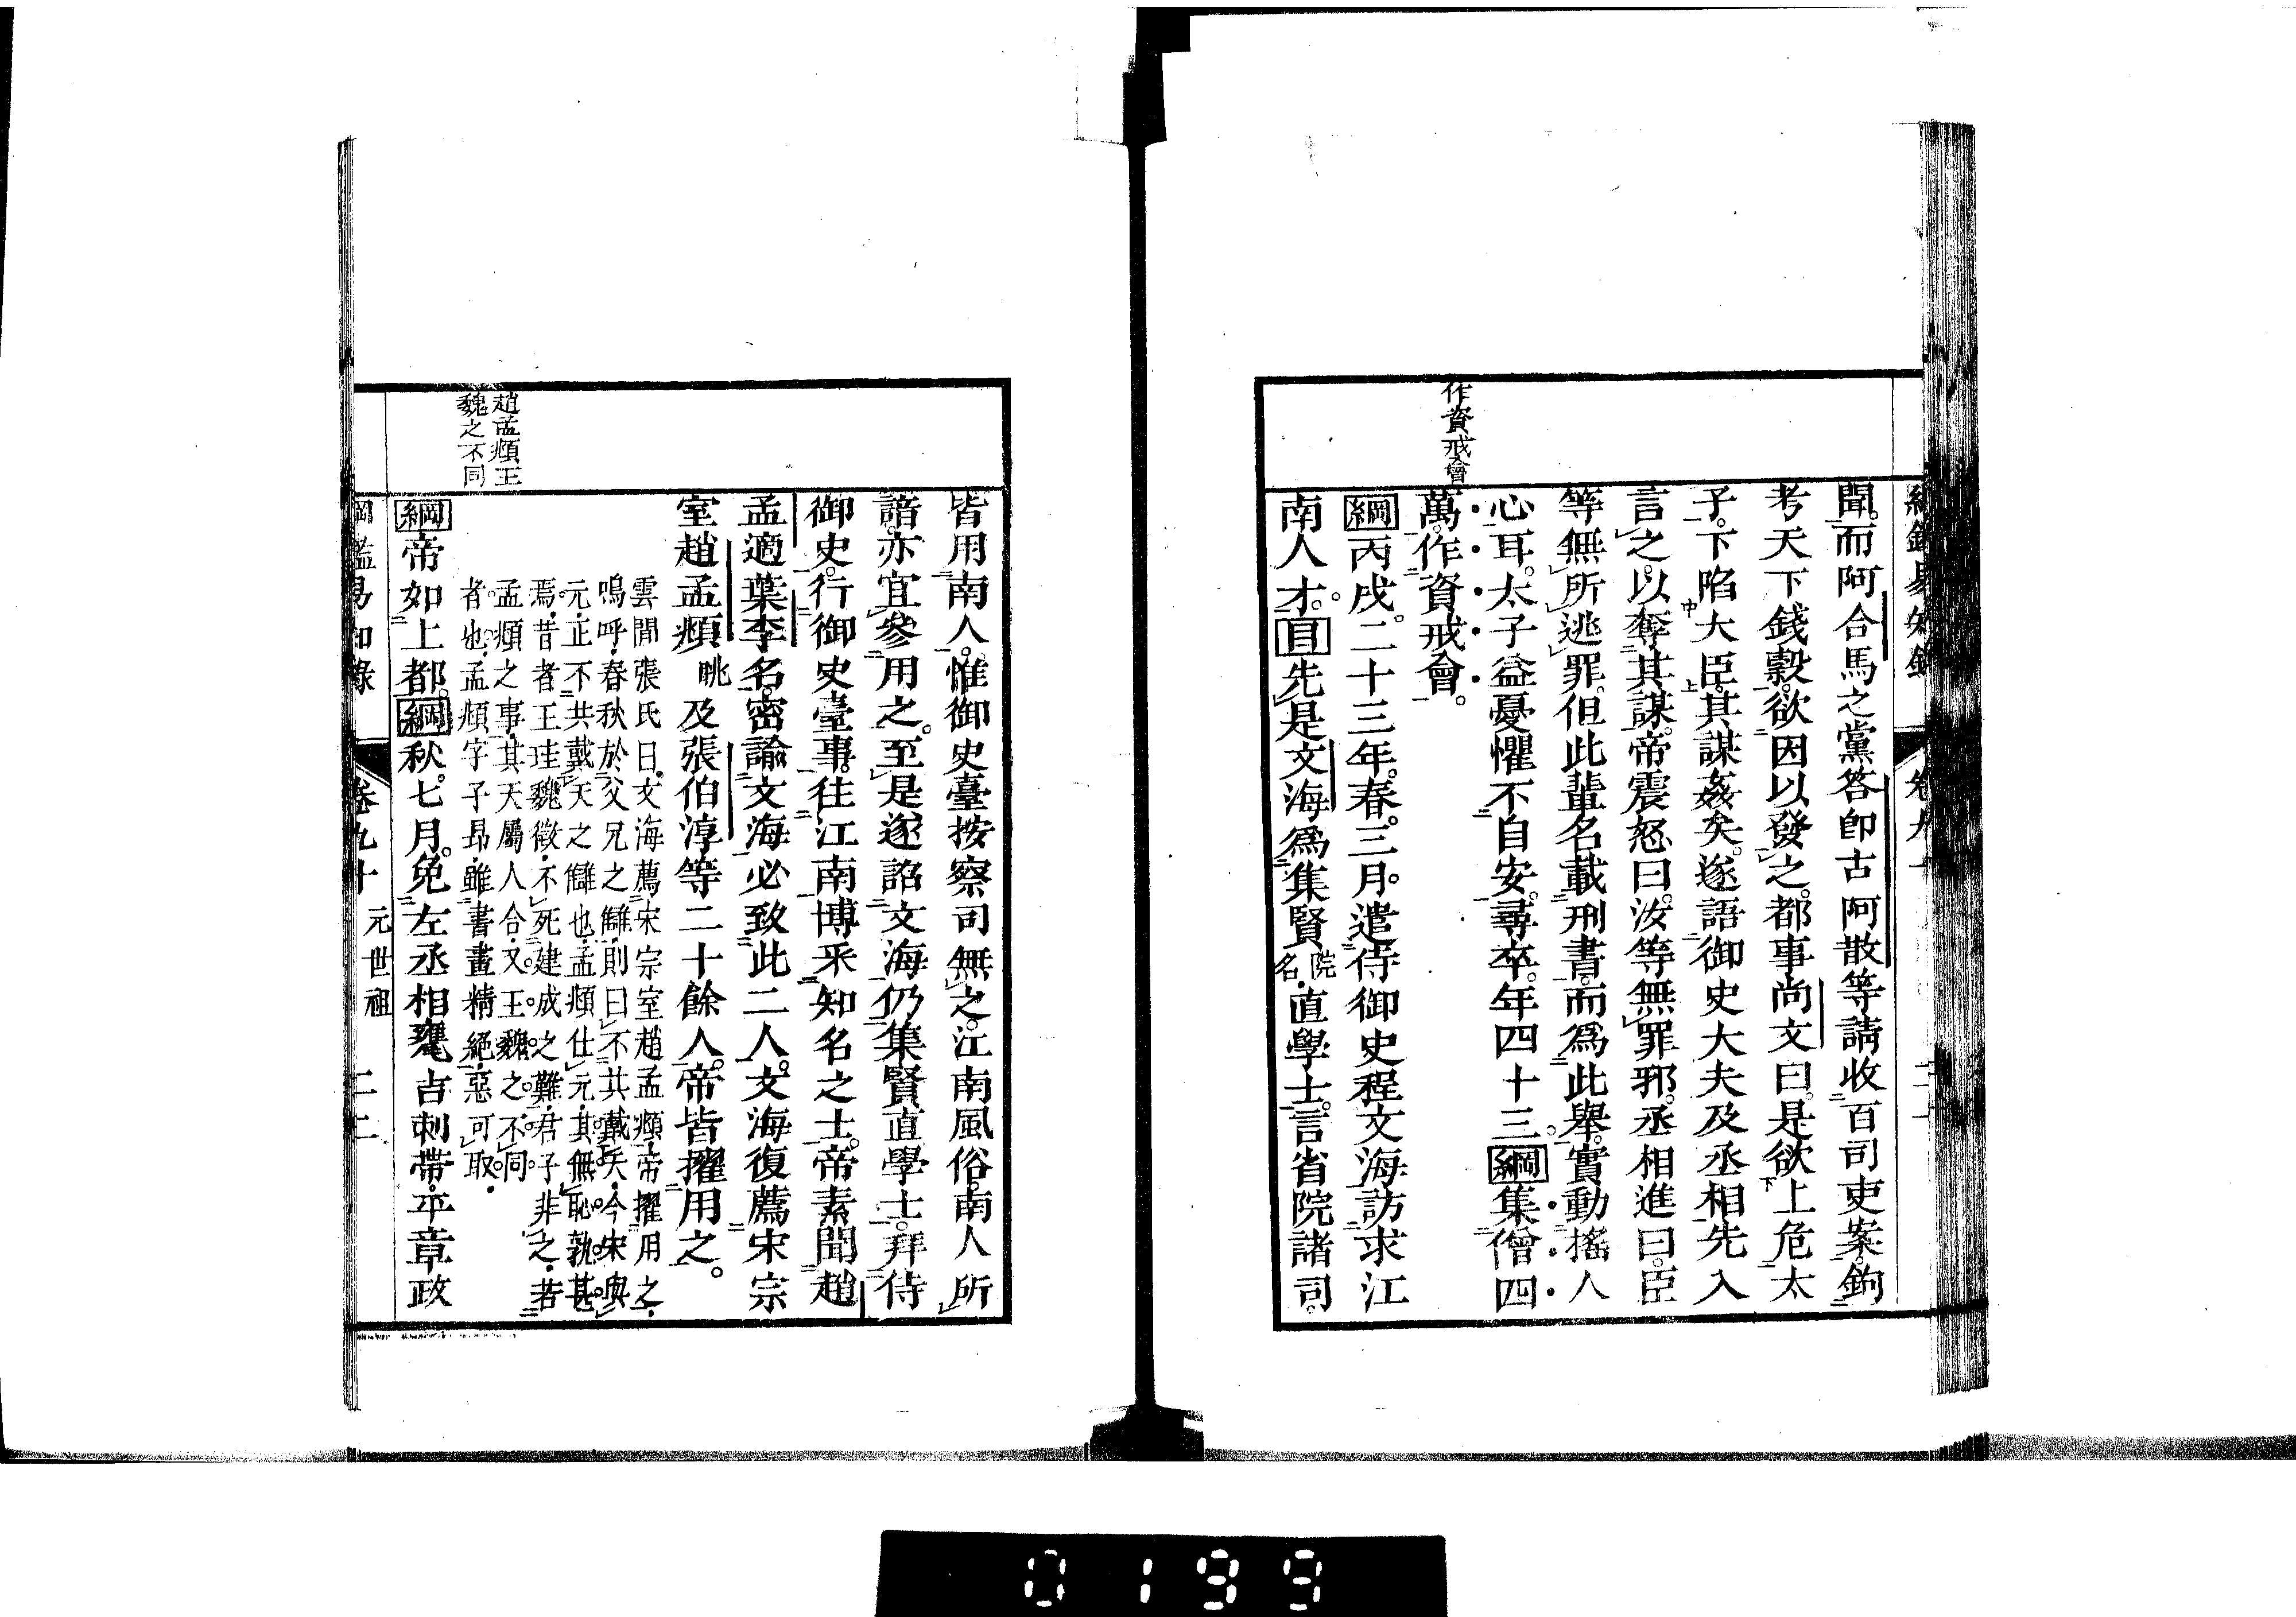 作資戒會
聞。而阿合馬之黨答卽古阿散等請收百司吏案。鉤
考天下錢穀。欲因以發之。都事尚文曰。是欲上危太
子。下陷大臣。其謀姦矣。遂語御史大夫及丞相先入
言之。以奪其謀。帝震怒曰。汝等無罪邪。丞相進曰。臣
等無所逃罪。但此輩名載刑書。而爲此舉。實動搖人
心耳。太子益憂懼不自安。尋卒。年四十三。綱集僧四
萬。作資戒會。
綱丙戌。二十三年。春。三月。遣侍御史程文海訪求江
南人才。目先是文海爲集賢院名直學士。言省院諸司。
趙孟頫王
魏之不同
皆用南人。惟御史臺按察司無之。江南風俗。南人所
諳。亦宜參用之。至是遂詔文海仍集賢直學士。拜侍
御史。行御史臺事。往江南博采知名之士。帝素聞趙
孟適葉李名。密諭文海必致此二人。文海復薦宋宗
室趙孟頫眺及張伯淳等二十餘人。帝皆擢用之。
雲間張氏曰。文海薦宋宗室趙孟頫。帝擢用之。
嗚呼。春秋於父兄之讎。則曰不共戴天。今宋與
元。正不共戴天之讎也。孟頫仕元。其無恥孰甚
焉。昔者王珪魏徵。不死建成之難。君子非之。若
孟頫之事。其天屬人合。又王魏之不同
者也。孟頫字子昂。雖書畫精絕。惡可取。
綱帝如上都。綱秋。七月。免左丞相甕吉剌帶。平章政
綱鑑易知錄 卷九十 元世祖 二二